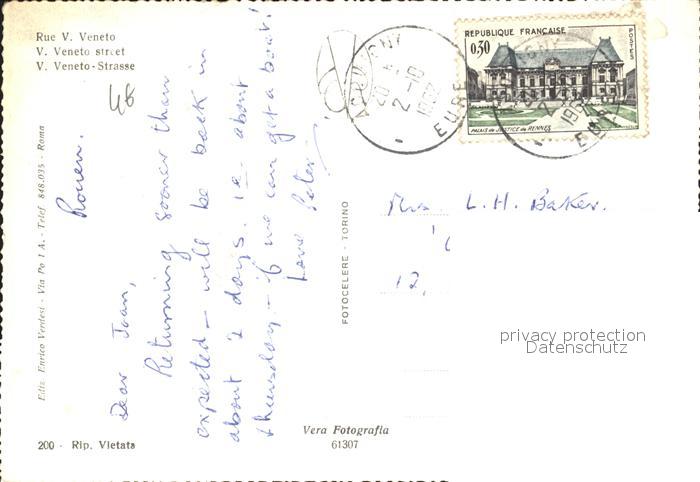 Rue V. Veneto
V. Veneto street
V. Veneto-Strasse
Ediz. Enrico Verdesi - Via Po 1 A. - Telef. 848.035 - Roma
Rouen.
Dear Joan,
Returning sooner than
expected – will be back in
about 2 days. ie about
thursday – if we can get a boat!
Love Peter
200 - Rip. Vietata
Vera Fotografia
61307
FOTOCELERE - TORINO
REPUBLIQUE FRANÇAISE
0,30
POSTES
PALAIS de JUSTICE de RENNES
2-10
1962
EURE
Mrs. L. H. Baker.
12,
privacy protection
Datenschutz